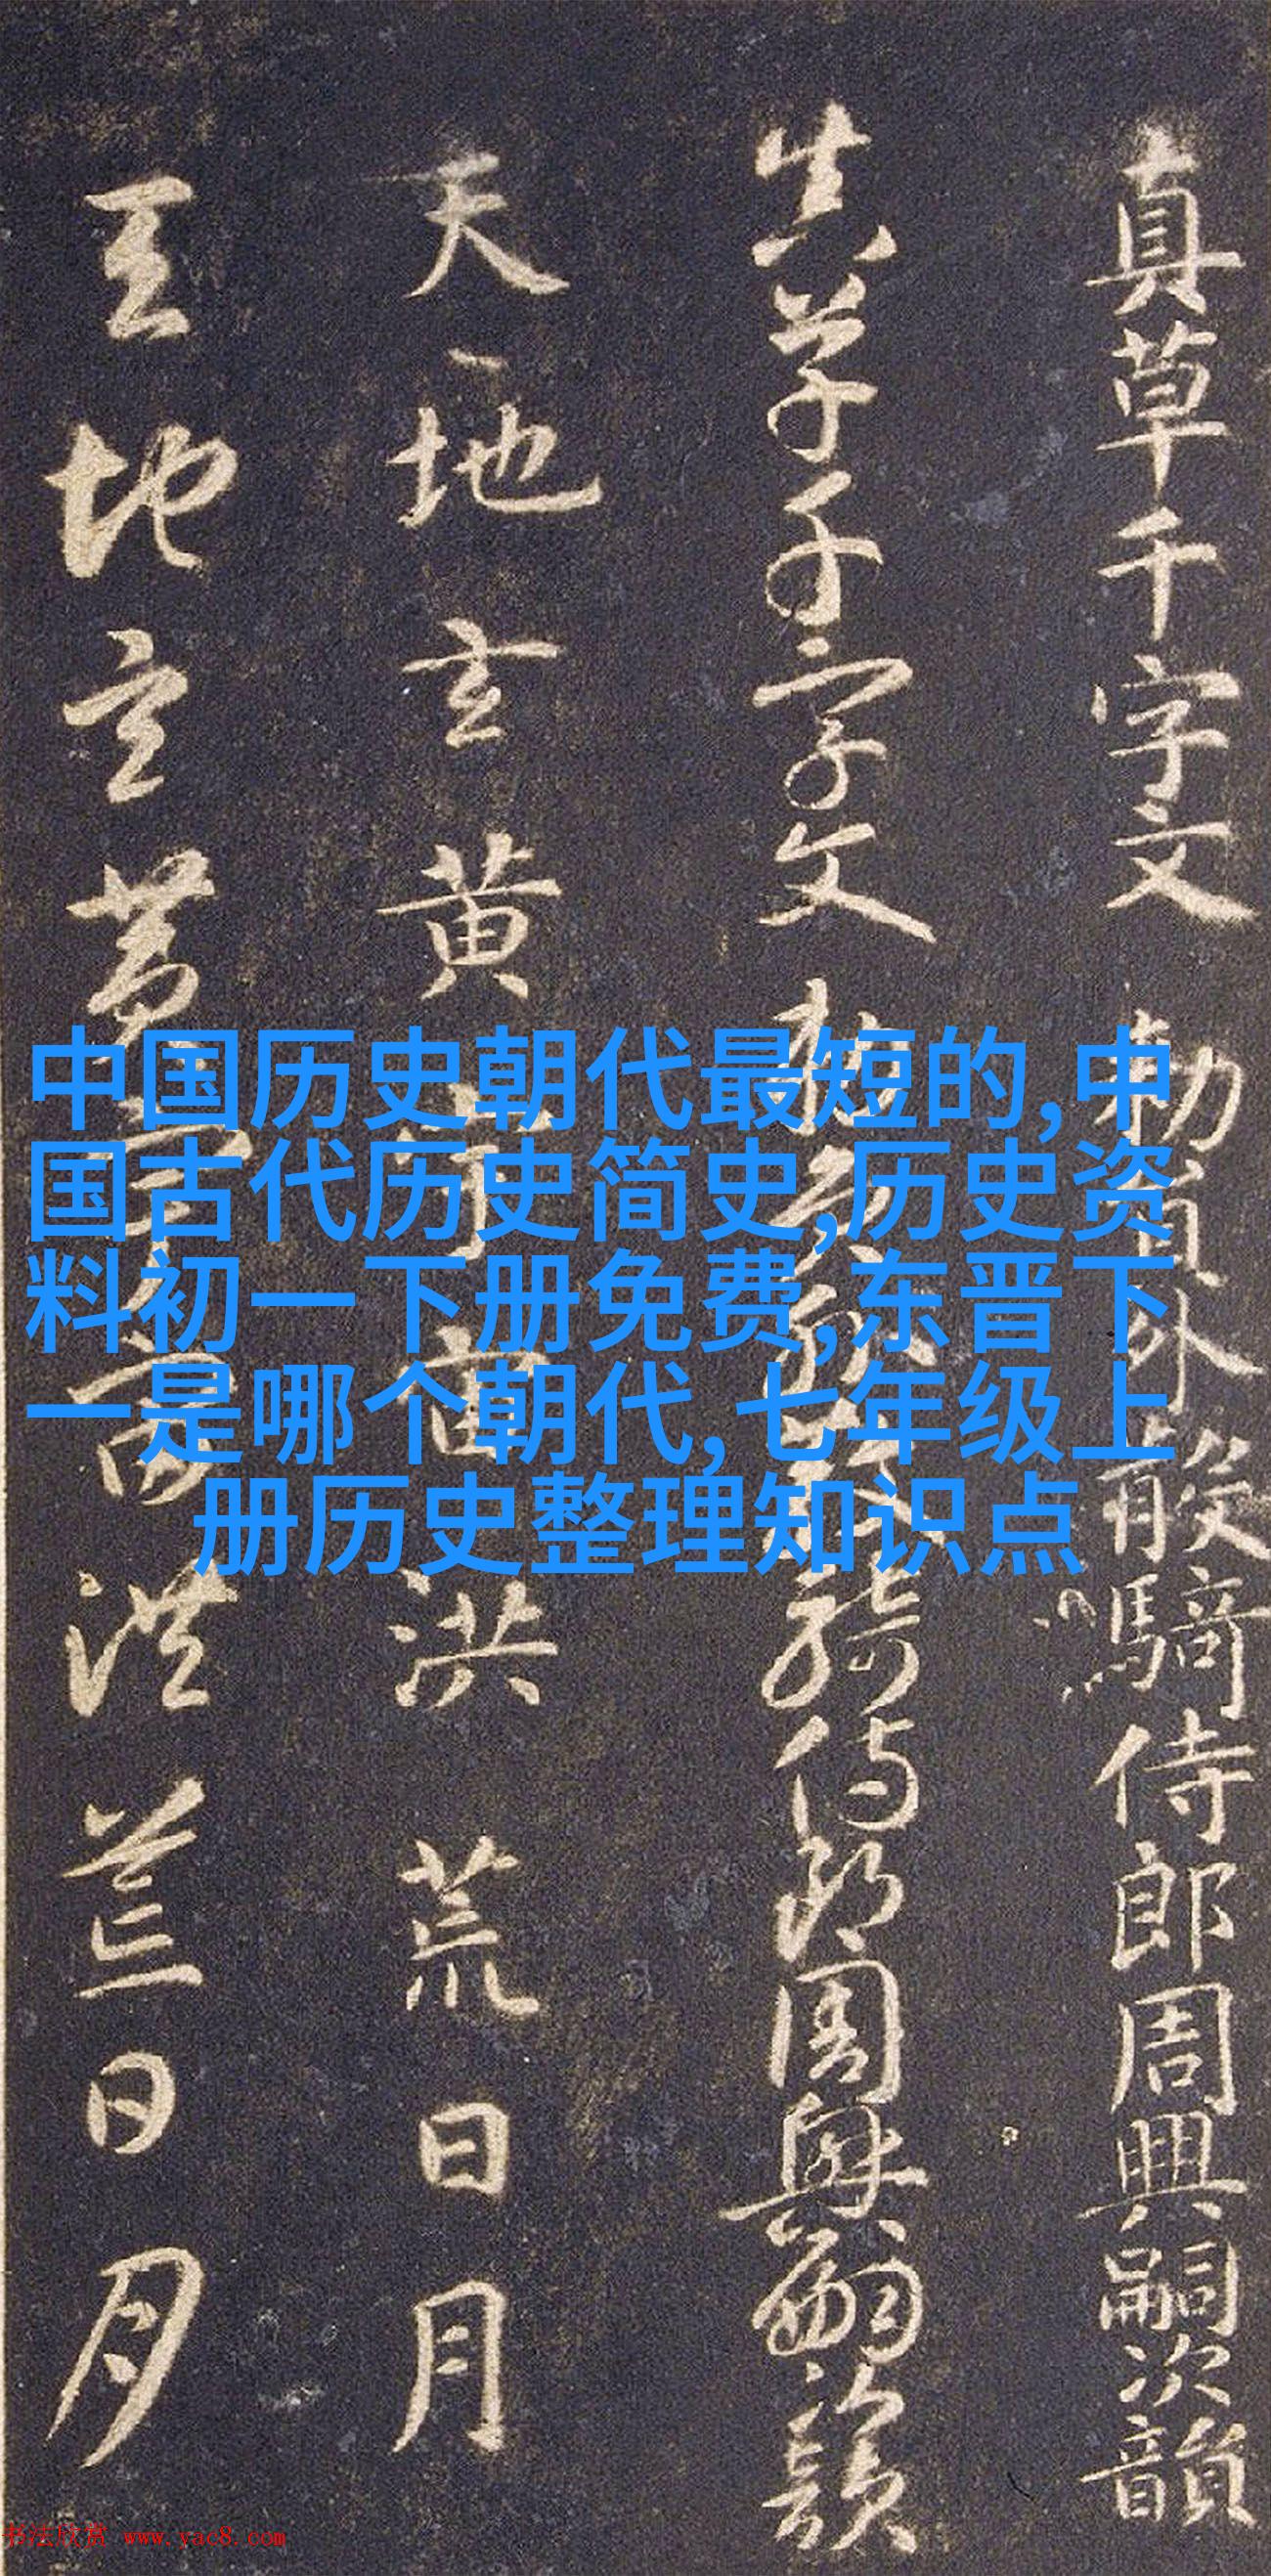 真草千字文 勅員外散騎侍郎周興嗣次韻
真草千字文 勅員外散騎侍郎周興嗣次韻
天地玄黄宇宙洪荒日月
天地玄黄宇宙洪荒日月
中国历史朝代最短的,中
国古代历史简史,历史资
料初一下册免费,东晋下
一是哪个朝代,七年级上
册历史整理知识点
书法欣赏 www.yac8.com